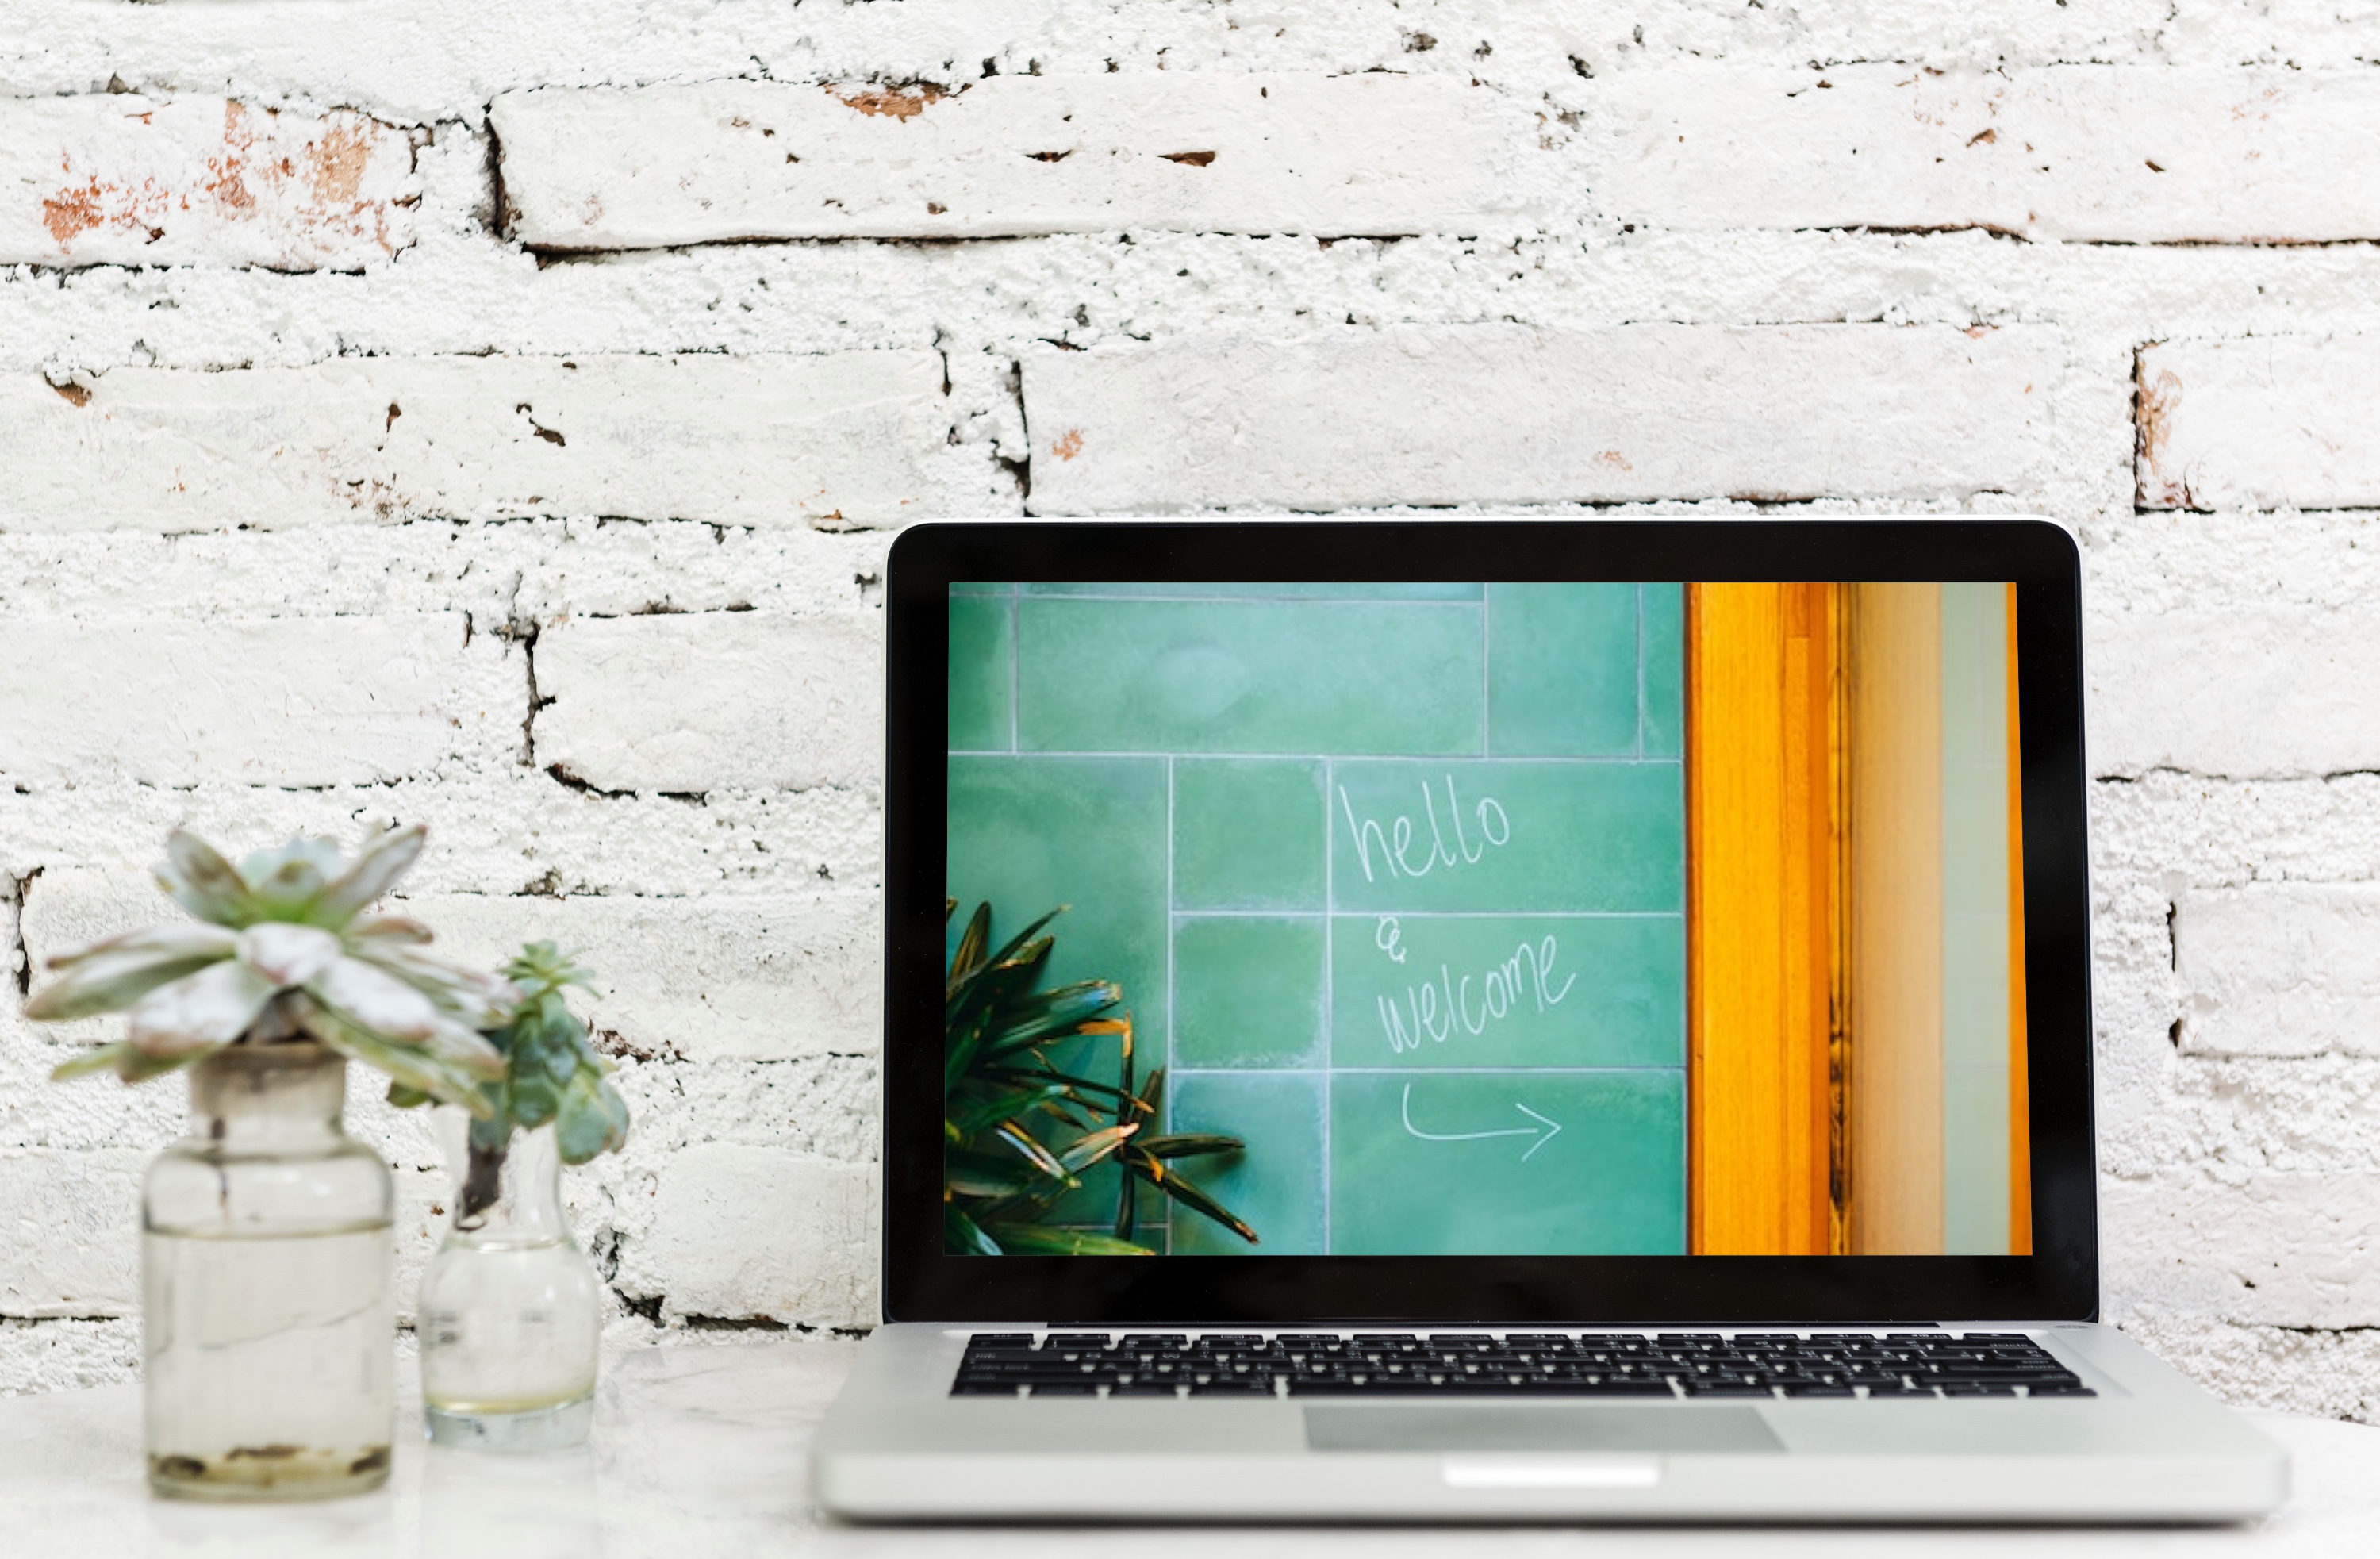 hello
&
welcome